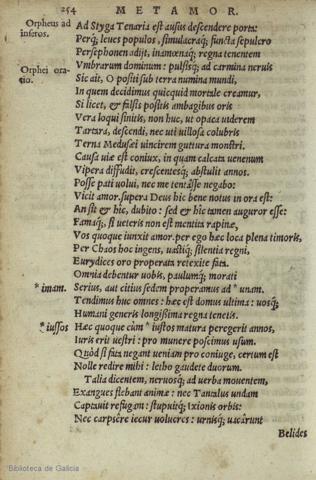 254 METAMOR.
Orpheus ad
inferos.
Ad Styga Tenaria est ausus descendere porta:
Perq́; leues populos, simulacraq́; functa sepulcro
Persephonen adijt, inamœnaq́; regna tenentem
Orphei ora-
tio.
Vmbrarum dominum: pulsisq́; ad carmina neruis
Sic ait, O positi sub terra numina mundi,
In quem decidimus quicquid mortale creamur,
Si licet, & falsis positis ambagibus oris
Vera loqui sinitis, non huc, ut opaca uiderem
Tartara, descendi, nec uti uillosa colubris
Terna Medusæi uincirem guttura monstri.
Causa uiæ est coniux, in quam calcata uenenum
Vipera diffudit, crescentesq́; abstulit annos.
Posse pati uolui, nec me tentasse negabo:
Vicit amor. supera Deus hic bene notus in ora est:
An sit & hic, dubito: sed & hic tamen auguror esse:
Famaq́; si ueteris non est mentita rapinæ,
Vos quoque iunxit amor. per ego hæc loca plena timoris,
Per Chaos hoc ingens, uastiq́; silentia regni,
Eurydices oro properata retexite fata.
Omnia debentur uobis, paulumq́; morati
* imam. Serius, aut citius sedem properamus ad * unam.
Tendimus huc omnes: hæc est domus ultima: uosq́;
Humani generis longissima regna tenetis.
* iussos Hæc quoque cùm * iustos matura peregerit annos,
Iuris erit uestri: pro munere poscimus usum.
Quòd si fata negant ueniam pro coniuge, certum est
Nolle redire mihi: letho gaudete duorum.
Talia dicentem, neruosq́; ad uerba mouentem,
Exangues flebant animæ: nec Tantalus undam
Captauit refugam: stupuitq́; Ixionis orbis:
Nec carpsêre iecur uolucres: urnisq́; uacârunt
Belides
Biblioteca de Galicia